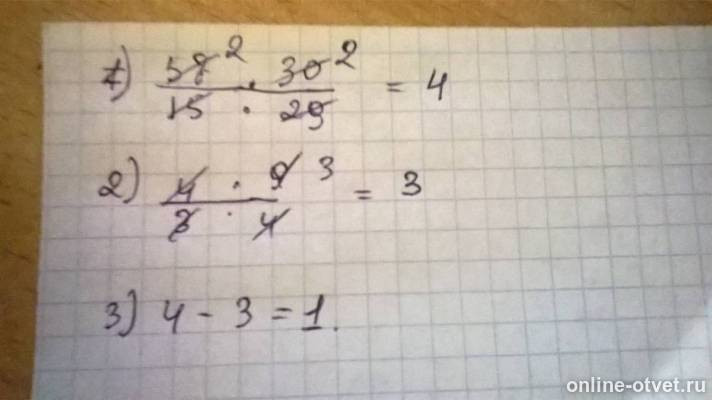 1) 58 2 · 30 2 / 15 · 29 = 4
2) 4 · 9 3 / 3 · 4 = 3
3) 4 - 3 = 1.
online-otvet.ru